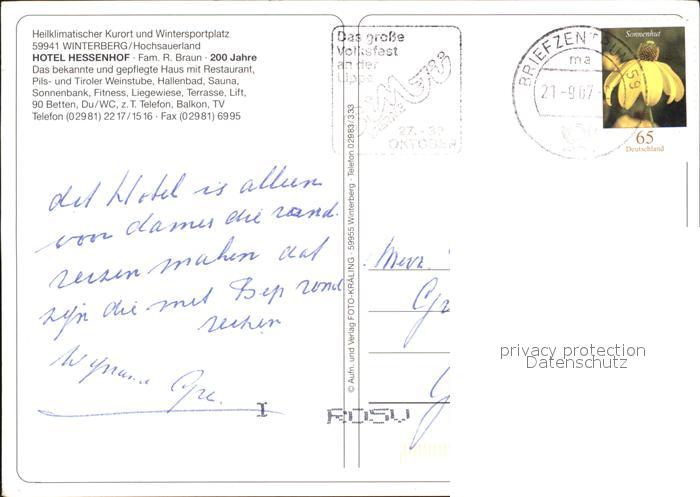 Heilklimatischer Kurort und Wintersportplatz
59941 WINTERBERG/Hochsauerland
HOTEL HESSENHOF · Fam. R. Braun · 200 Jahre
Das bekannte und gepflegte Haus mit Restaurant,
Pils- und Tiroler Weinstube, Hallenbad, Sauna,
Sonnenbank, Fitness, Liegewiese, Terrasse, Lift,
90 Betten, Du/WC, z. T. Telefon, Balkon, TV
Telefon (02981) 2217/1516 · Fax (02981) 6995
Das große
Volksfest
an der
Lippe
27.-30
OKTOBER
BRIEFZENTRUM 59
ma
21-9 07-
Sonnenhut
65
Deutschland
dit Hotel is alleen
voor dames die rond
reizen maken dat
zijn die met Bep rond
reizen
© Aufn. und Verlag FOTO-KRÄLING · 59955 Winterberg · Telefon 02983/333
Mevr.
privacy protection
Datenschutz